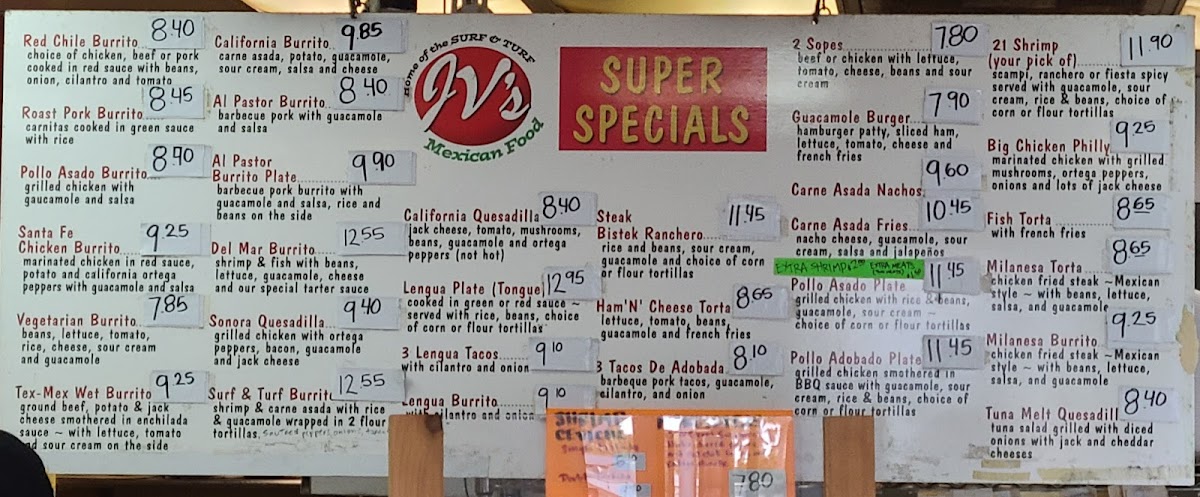 Red Chile Burrito 8.40
choice of chicken, beef or pork
cooked in red sauce with beans,
onion, cilantro and tomato
Roast Pork Burrito 8.45
carnitas cooked in green sauce
with rice
Pollo Asado Burrito 8.40
grilled chicken with
gaucamole and salsa
Santa Fe
Chicken Burrito 9.25
marinated chicken in red sauce,
potato and california ortega
peppers with guacamole and salsa
Vegetarian Burrito 7.85
beans, lettuce, tomato,
rice, cheese, sour cream
and guacamole
Tex-Mex Wet Burrito 9.25
ground beef, potato & jack
cheese smothered in enchilada
sauce ~ with lettuce, tomato
and sour cream on the side
California Burrito 9.85
carne asada, potato, guacamole,
sour cream, salsa and cheese
Al Pastor Burrito 8.40
barbecue pork with guacamole
and salsa
Al Pastor
Burrito Plate 9.90
barbecue pork burrito with
guacamole and salsa, rice and
beans on the side
Del Mar Burrito 12.55
shrimp & fish with beans,
lettuce, guacamole, cheese
and our special tarter sauce
Sonora Quesadilla 9.40
grilled chicken with ortega
peppers, bacon, guacamole
and jack cheese
Surf & Turf Burrito 12.55
shrimp & carne asada with rice
& guacamole wrapped in 2 flour
tortillas,
Home of the SURF & TURF
JV's
Mexican Food
SUPER
SPECIALS
California Quesadilla 8.40
jack cheese, tomato, mushrooms,
beans, guacamole and ortega
peppers (not hot)
Lengua Plate (Tongue) 12.95
cooked in green or red sauce ~
served with rice, beans, choice
of corn or flour tortillas
3 Lengua Tacos 9.10
with cilantro and onion
Lengua Burrito 9.10
with cilantro and onion
Steak
Bistek Ranchero 11.45
rice and beans, sour cream,
guacamole and choice of corn
or flour tortillas
Ham'N' Cheese Torta 8.65
lettuce, tomato, beans,
guacamole and french fries
3 Tacos De Adobada 8.10
barbeque pork tacos, guacamole,
cilantro, and onion
SHRIMP
CEVICHE
7.80
2 Sopes 7.80
beef or chicken with lettuce,
tomato, cheese, beans and sour
cream
Guacamole Burger 7.90
hamburger patty, sliced ham,
lettuce, tomato, cheese and
french fries
Carne Asada Nachos 9.60
Carne Asada Fries 10.45
nacho cheese, guacamole, sour
cream, salsa and jalapeños
EXTRA SHRIMP EXTRA MEATS
Pollo Asado Plate 11.45
grilled chicken with rice & beans,
guacamole, sour cream ~
choice of corn or flour tortillas
Pollo Adobado Plate 11.45
grilled chicken smothered in
BBQ sauce with guacamole, sour
cream, rice & beans, choice of
corn or flour tortillas
21 Shrimp
(your pick of) 11.90
scampi, ranchero or fiesta spicy
served with guacamole, sour
cream, rice & beans, choice of
corn or flour tortillas
Big Chicken Philly 9.25
marinated chicken with grilled
mushrooms, ortega peppers,
onions and lots of jack cheese
Fish Torta 8.65
with french fries
Milanesa Torta 8.65
chicken fried steak ~Mexican
style ~ with beans, lettuce,
salsa, and guacamole
Milanesa Burrito 9.25
chicken fried steak ~Mexican
style ~ with beans, lettuce,
salsa, and guacamole
Tuna Melt Quesadill 8.40
tuna salad grilled with diced
onions with jack and cheddar
cheeses